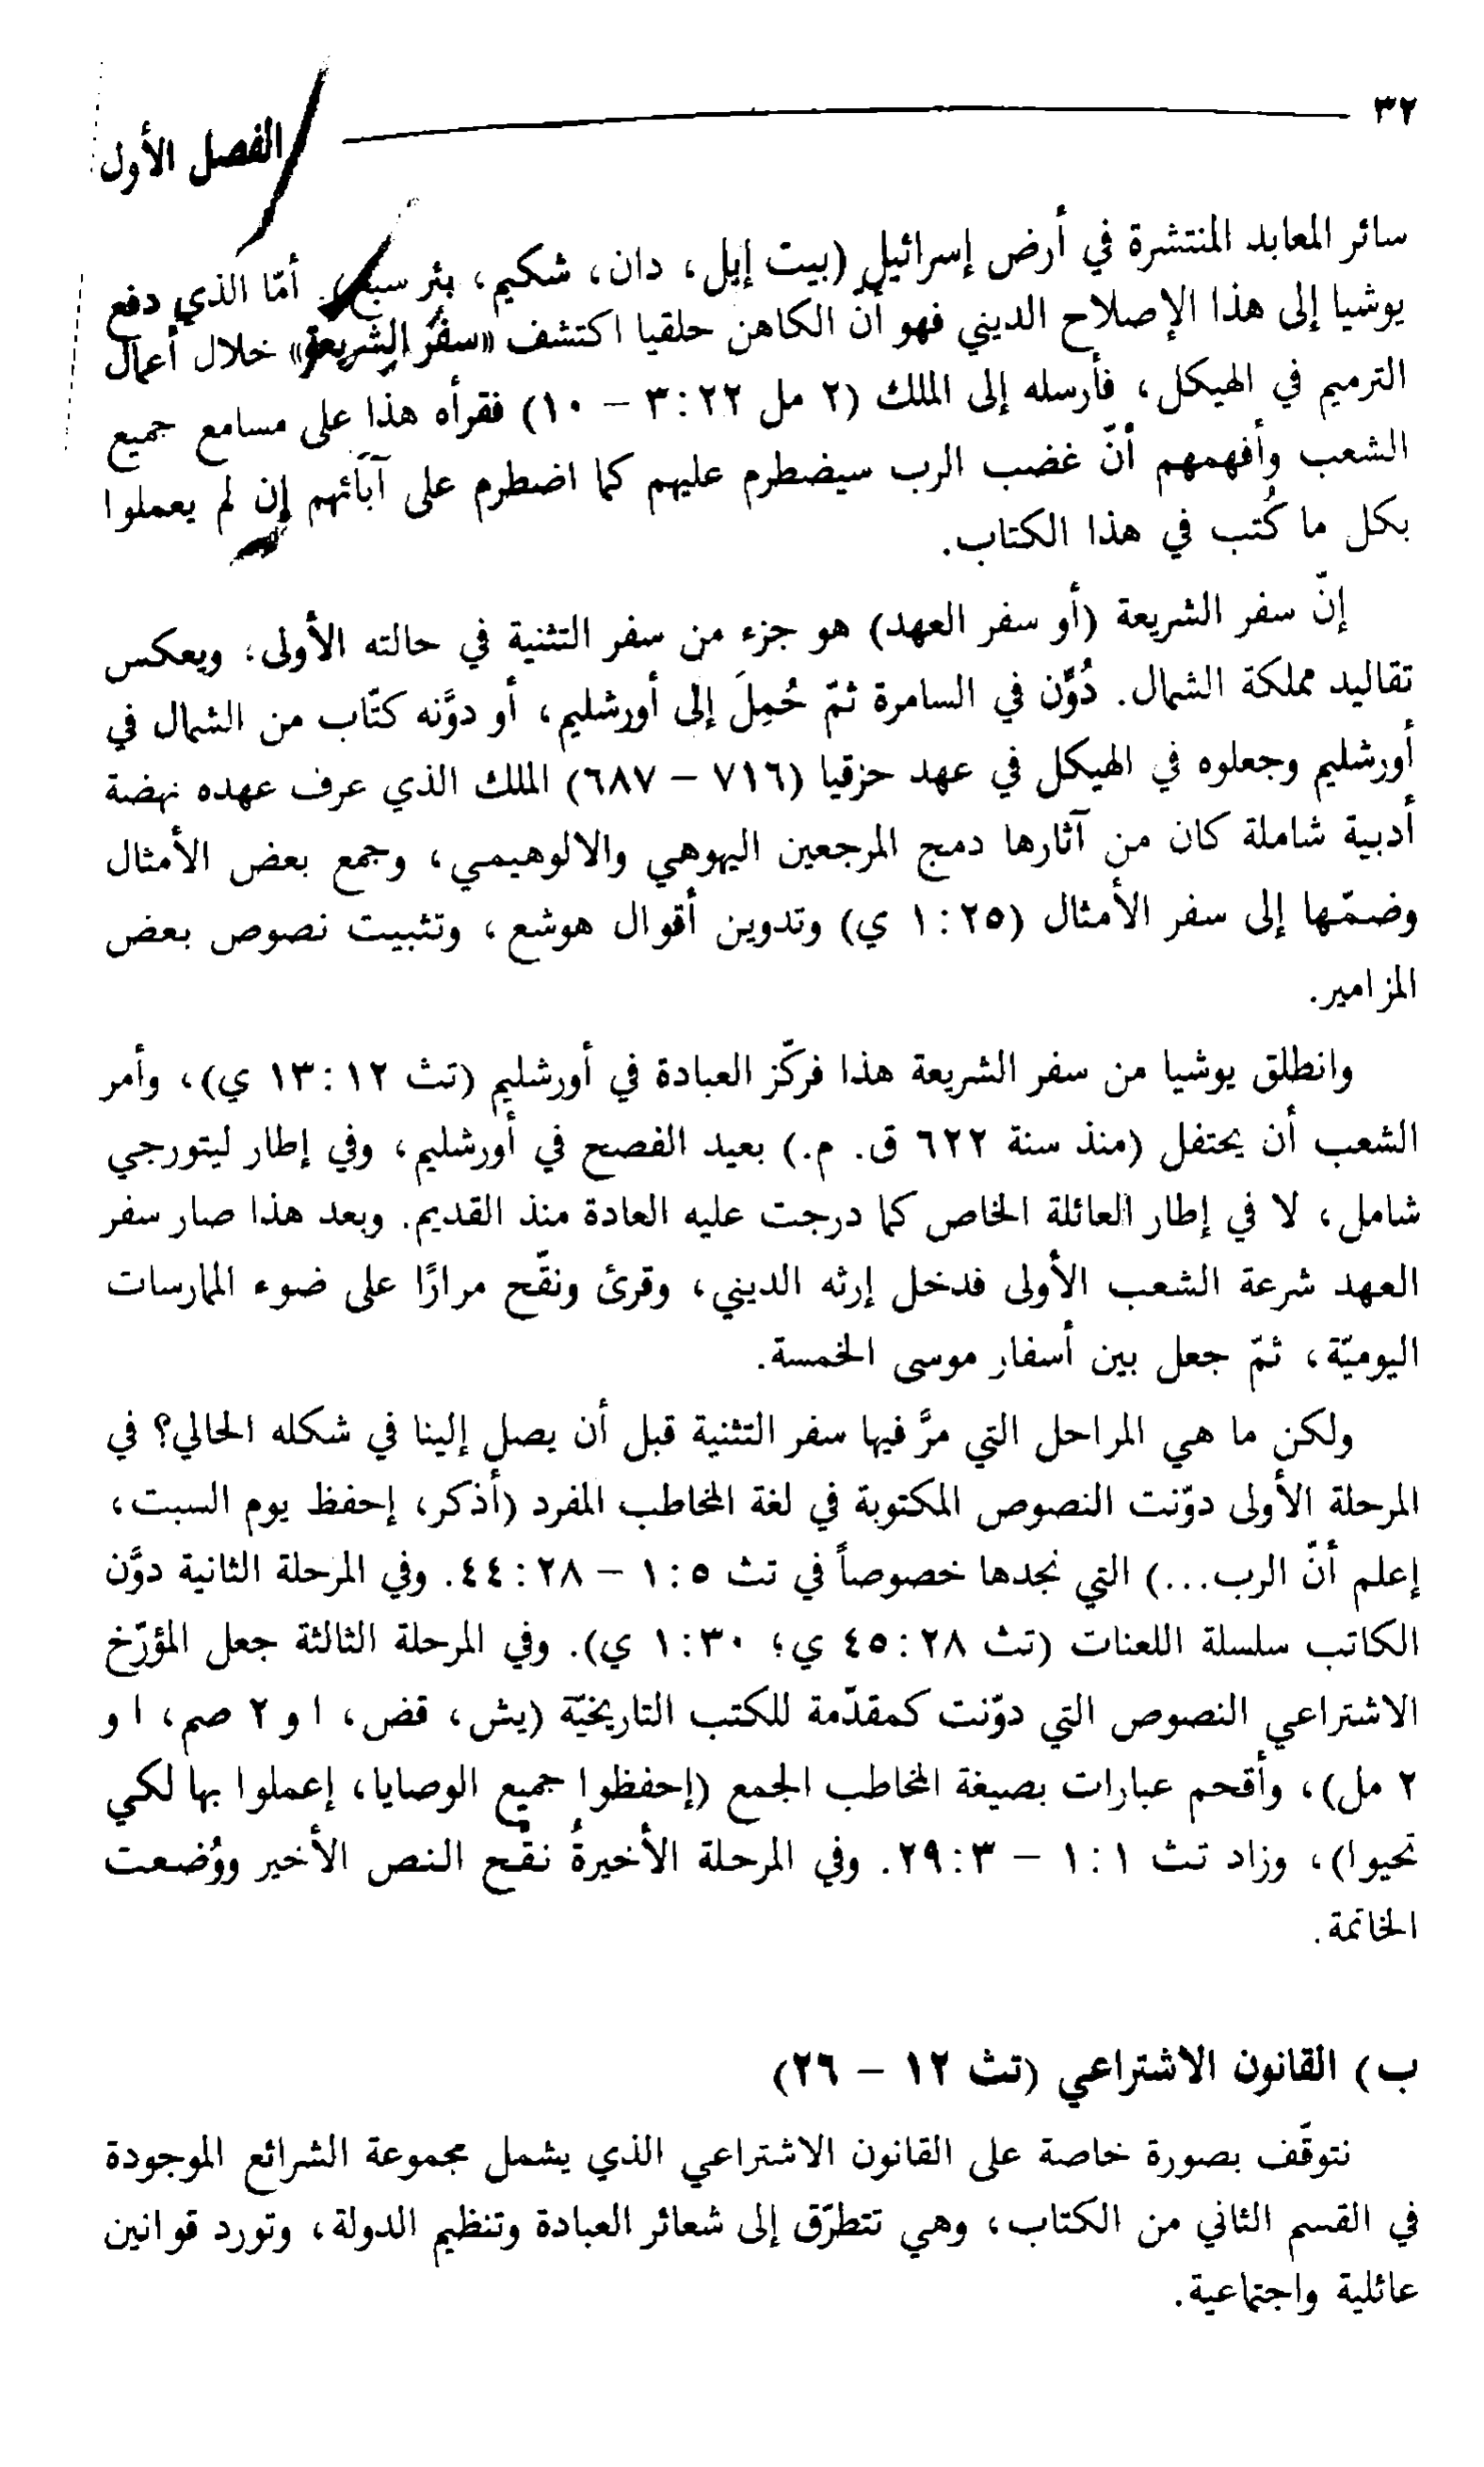 ٣٢
الفصل الأول
سائر المعابد المنتشرة في أرض إسرائيل (بيت إيل، دان، شكيم، بئر سبع). أمّا الذي دفع
يوشيا إلى هذا الإصلاح الديني فهو أنّ الكاهن حلقيا اكتشف «سفر الشريعة» خلال أعمال
الترميم في الهيكل، فأرسله إلى الملك (٢ مل ٢٢:٣ – ١٠) فقرأه هذا على مسامع جميع
الشعب وأفهمهم أنّ غضب الرب سيضطرم عليهم كما اضطرم على آبائهم إن لم يعملوا
بكل ما كُتب في هذا الكتاب.
إنّ سفر الشريعة (أو سفر العهد) هو جزء من سفر التثنية في حالته الأولى، ويعكس
تقاليد مملكة الشمال. دُوِّن في السامرة ثمّ حُمِلَ إلى أورشليم، أو دوَّنه كتّاب من الشمال في
أورشليم وجعلوه في الهيكل في عهد حزقيا (٧١٦ – ٦٨٧) الملك الذي عرف عهده نهضة
أدبية شاملة كان من آثارها دمج المرجعين اليهوهي والالوهيمي، وجمع بعض الأمثال
وضمّها إلى سفر الأمثال (٢٥:١ ي) وتدوين أقوال هوشع، وتثبيت نصوص بعض
المزامير.
وانطلق يوشيا من سفر الشريعة هذا فركّز العبادة في أورشليم (تث ١٢:١٣ ي)، وأمر
الشعب أن يحتفل (منذ سنة ٦٢٢ ق. م.) بعيد الفصح في أورشليم، وفي إطار ليتورجي
شامل، لا في إطار العائلة الخاص كما درجت عليه العادة منذ القديم. وبعد هذا صار سفر
العهد شرعة الشعب الأولى فدخل إرثه الديني، وقرئ ونقّح مرارًا على ضوء الممارسات
اليوميّة، ثمّ جعل بين أسفار موسى الخمسة.
ولكن ما هي المراحل التي مرَّ فيها سفر التثنية قبل أن يصل إلينا في شكله الحالي؟ في
المرحلة الأولى دوّنت النصوص المكتوبة في لغة المخاطب المفرد (أذكر، إحفظ يوم السبت،
إعلم أنّ الرب...) التي نجدها خصوصاً في تث ٥:١ – ٢٨:٤٤. وفي المرحلة الثانية دوَّن
الكاتب سلسلة اللعنات (تث ٢٨:٤٥ ي؛ ٣٠:١ ي). وفي المرحلة الثالثة جعل المؤرّخ
الاشتراعي النصوص التي دوّنت كمقدّمة للكتب التاريخيّة (يش، قض، ١ و ٢ صم، ١ و
٢ مل)، وأقحم عبارات بصيغة المخاطب الجمع (إحفظوا جميع الوصايا، إعملوا بها لكي
تحيوا)، وزاد تث ١:١ – ٣:٢٩. وفي المرحلة الأخيرة نقّح النص الأخير ووُضعت
الخاتمة.
ب) القانون الاشتراعي (تث ١٢ – ٢٦)
نتوقّف بصورة خاصة على القانون الاشتراعي الذي يشمل مجموعة الشرائع الموجودة
في القسم الثاني من الكتاب، وهي تتطرّق إلى شعائر العبادة وتنظيم الدولة، وتورد قوانين
عائلية واجتماعية.